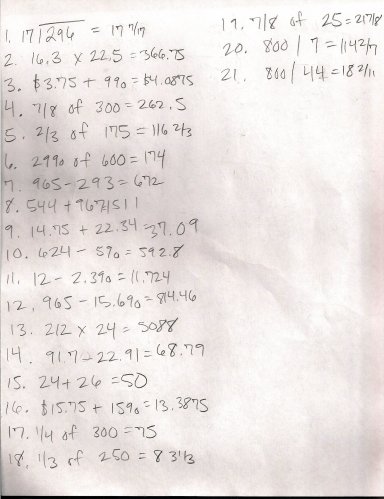 1. 17/296 = 17 7/17
2. 16.3 x 22.5 = 366.75
3. $3.75 + 9% = $4.0875
4. 7/8 of 300 = 262.5
5. 2/3 of 175 = 116 2/3
6. 29% of 600 = 174
7. 965 - 293 = 672
8. 544 + 967 = 1511
9. 14.75 + 22.34 = 37.09
10. 624 - 5% = 592.8
11. 12 - 2.3% = 11.724
12. 965 - 15.6% = 814.46
13. 212 x 24 = 5088
14. 91.7 - 22.91 = 68.79
15. 24 + 26 = 50
16. $15.75 + 15% = 13.3875
17. 1/4 of 300 = 75
18. 1/3 of 250 = 83 1/3
19. 7/8 of 25 = 21 7/8
20. 800 / 7 = 114 2/7
21. 800 / 44 = 18 2/11